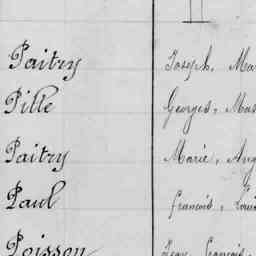 Paitry Joseph, Ma
Pille Georges, Mar
Paitry Marie, Aug
Paul François, Loui
Poisson Jean François,